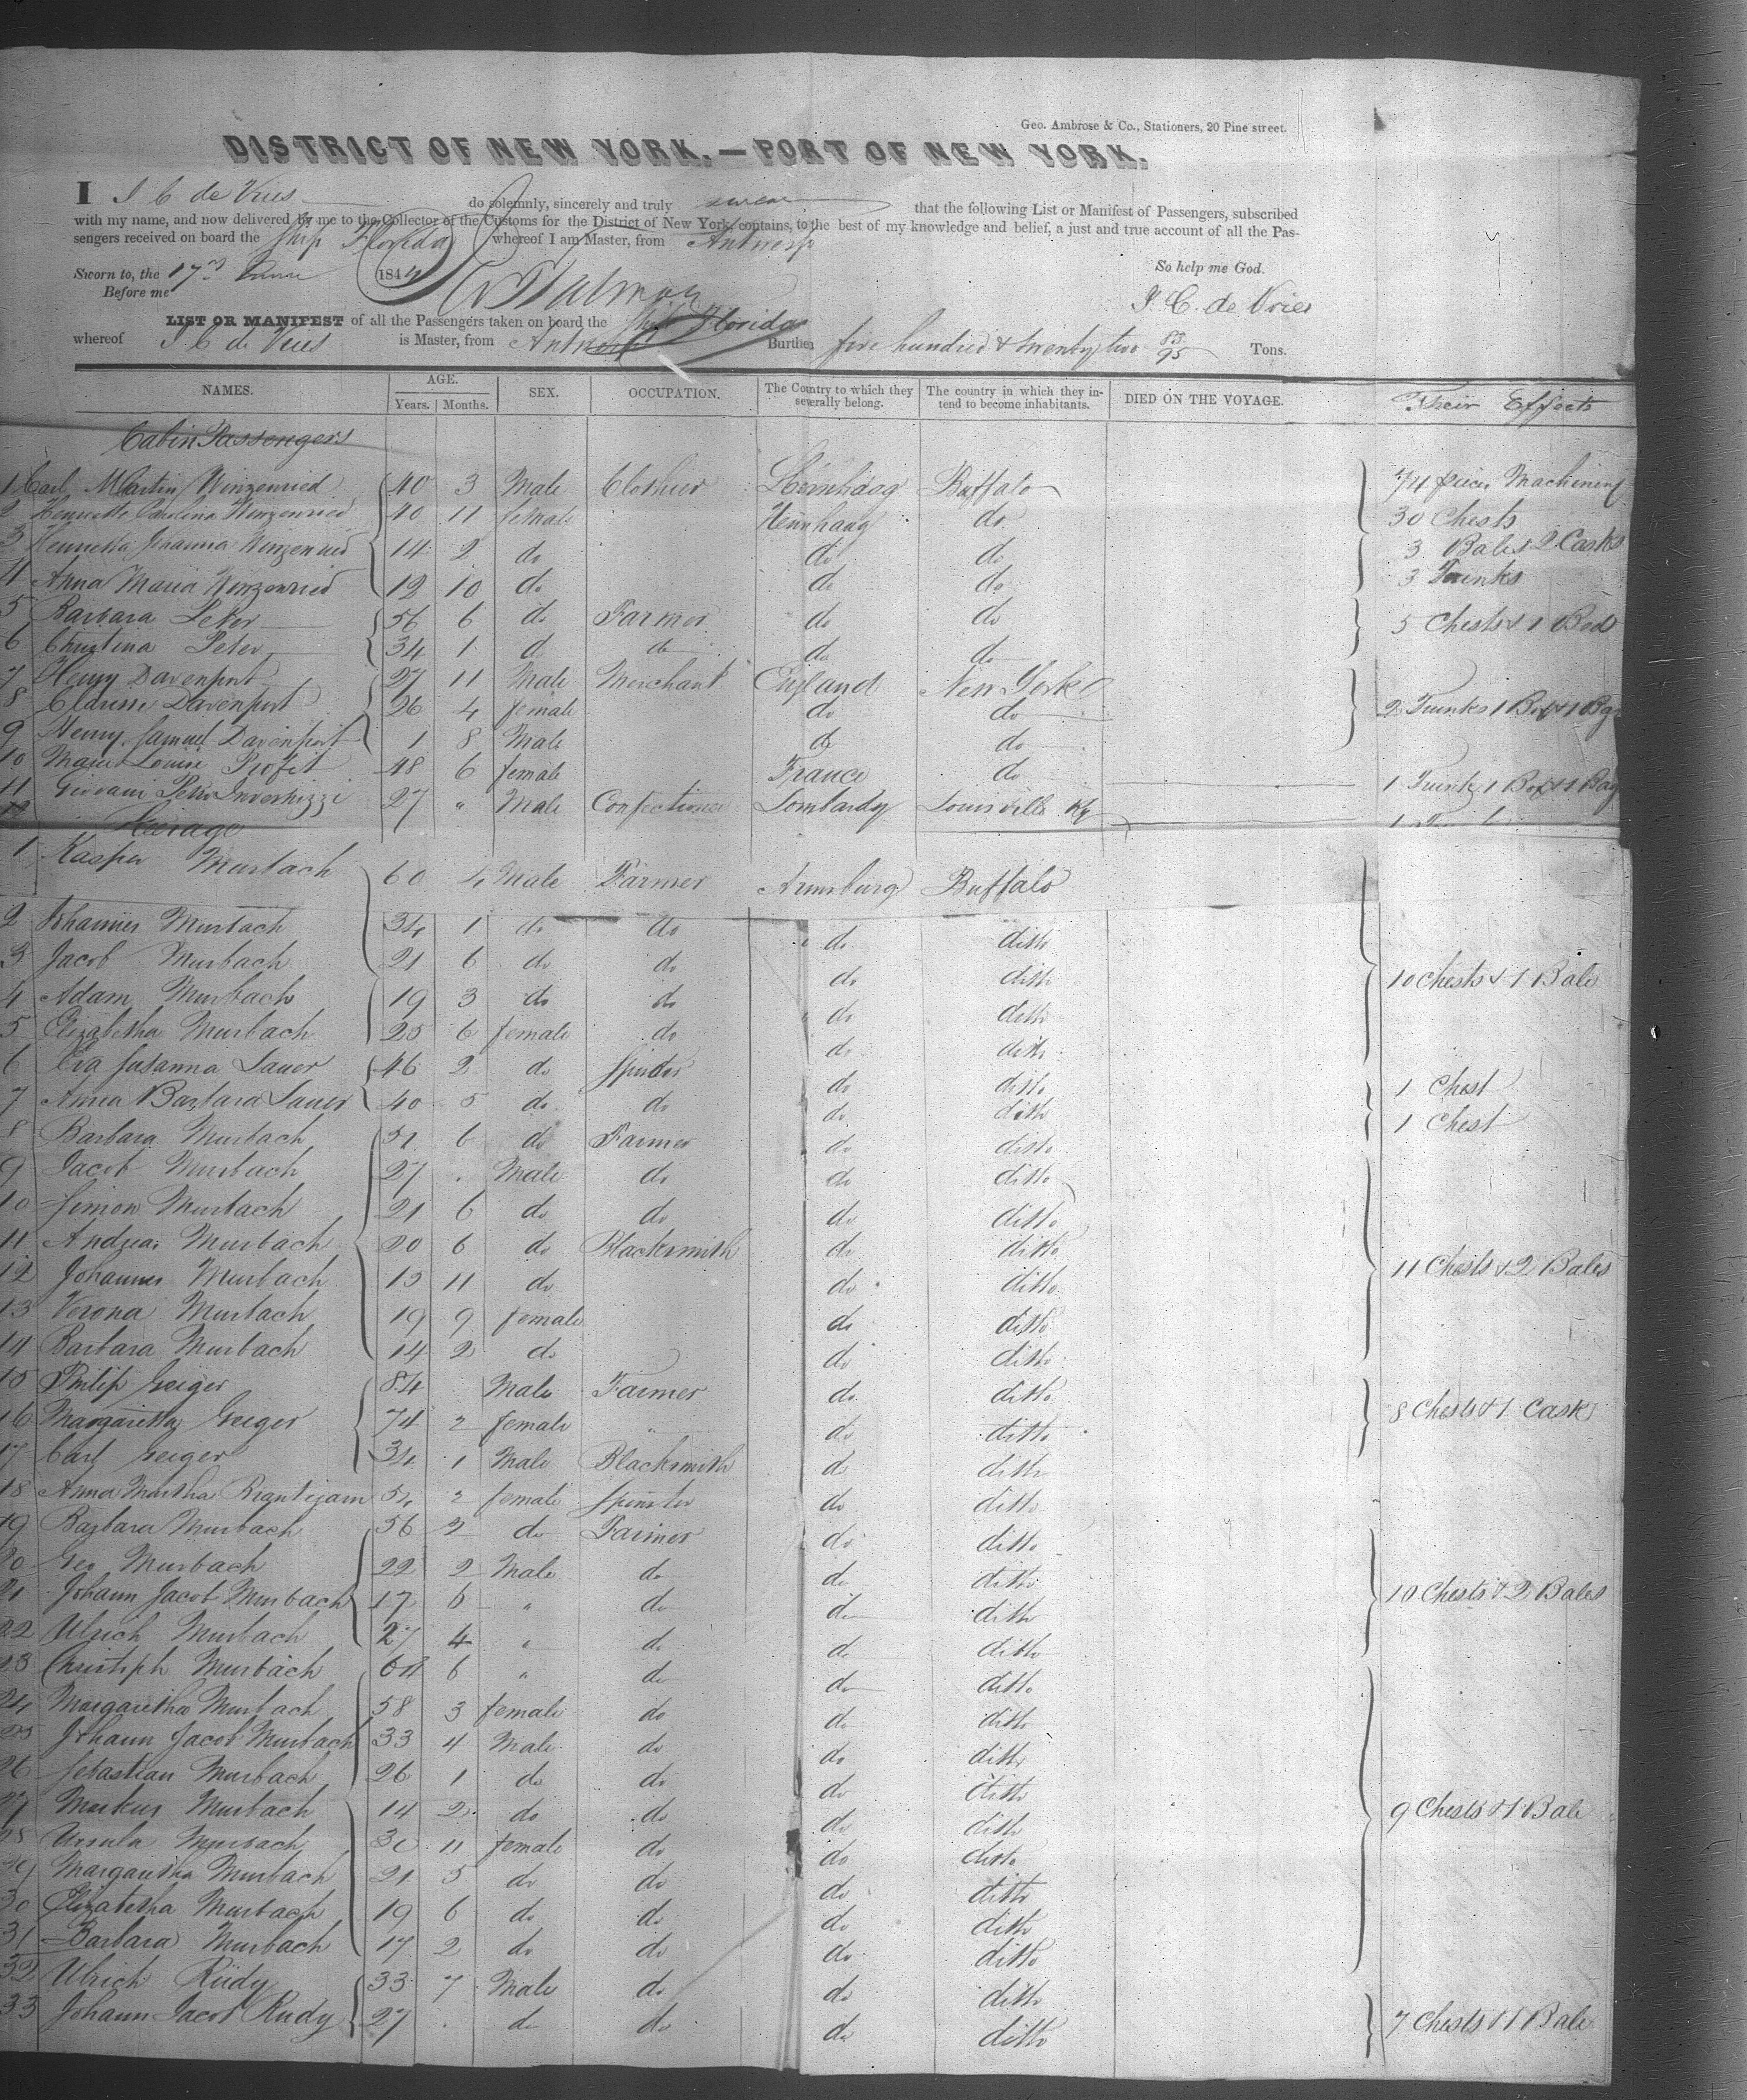 Geo. Ambrose & Co., Stationers, 20 Pine street.
DISTRICT OF NEW YORK.—PORT OF NEW YORK.
I J C de Vries do solemnly, sincerely and truly swear that the following List or Manifest of Passengers, subscribed
with my name, and now delivered by me to the Collector of the Customs for the District of New York, contains, to the best of my knowledge and belief, a just and true account of all the Pas-
sengers received on board the Ship Florida whereof I am Master, from Antwerp
Sworn to, the 17 June 1844 So help me God.
Before me J. C. de Vries
LIST OR MANIFEST of all the Passengers taken on board the Ship Florida
whereof J C de Vries is Master, from Antwerp Burthen five hundred & twenty two 83/95 Tons.
NAMES. AGE. Years. Months. SEX. OCCUPATION. The Country to which they severally belong. The country in which they intend to become inhabitants. DIED ON THE VOYAGE. Their Effects
Cabin Passengers
1 Carl Martin Winzenried 40 3 Male Clothier Buffalo 74 pieces Machinery
2 Henriette Carolina Winzenried 40 11 female do 30 Chests
3 Henrietta Johanna Winzenried 14 2 do do do 3 Bales 2 Casks
4 Anna Maria Winzenried 12 10 do do do 3 Trunks
5 Barbara Peter 56 6 do Farmer do do 5 Chests & 1 Bed
6 Christina Peter 34 1 do do do do
7 Henry Davenport 27 11 Male Merchant England New York
8 Davenport 26 4 female do do 2 Trunks 1 Box & 1 Bag
9 Henry Samuel Davenport 1 8 Male do do
10 Marie Louise Profit 48 6 female France do 1 Trunk 1 Box & 1 Bag
11 Giovani Petro Invernizzi 27 " Male Confectioner Lombardy Louisville Ky
Steerage
1 Kasper Murbach 60 4 Male Farmer Buffalo
2 Johannes Murbach 34 1 do do do ditto
3 Jacob Murbach 21 6 do do do ditto 10 Chests & 1 Bale
4 Adam Murbach 19 3 do do do ditto
5 Elizabetha Murbach 25 6 female do do ditto
6 Eva Susanna Sauer 46 2 do Spinster do ditto 1 Chest
7 Anna Barbara Sauer 40 5 do do do ditto 1 Chest
8 Barbara Murbach 52 6 do Farmer do ditto
9 Jacob Murbach 27 . Male do do ditto
10 Simon Murbach 21 6 do do do ditto
11 Andreas Murbach 20 6 do Blacksmith do ditto
12 Johannes Murbach 15 11 do do ditto 11 Chests & 2 Bales
13 Verona Murbach 19 9 female do ditto
14 Barbara Murbach 14 2 do do ditto
15 Philip Geiger 84 Male Farmer do ditto 8 Chests & 1 Cask
16 Margaretha Geiger 74 2 female " do ditto
17 Carl Geiger 34 1 Male Blacksmith do ditto
18 Anna Martha 54 2 female Spinster do ditto
19 Barbara Murbach 56 2 do Farmer do ditto
20 Geo Murbach 22 2 Male do do ditto
21 Johann Jacob Murbach 17 6 " do do ditto 10 Chests & 2 Bales
22 Ulrich Murbach 27 4 " do do ditto
23 Christoph Murbach 64 6 " do do ditto
24 Margaretha Murbach 58 3 female do do ditto
25 Johann Jacob Murbach 33 4 Male do do ditto
26 Sebastian Murbach 26 1 do do do ditto
27 Markus Murbach 14 2 do do do ditto 9 Chests & 1 Bale
28 Ursula Murbach 30 11 female do do ditto
29 Margaretha Murbach 21 5 do do do ditto
30 Elizabetha Murbach 19 6 do do do ditto
31 Barbara Murbach 17 2 do do do ditto
32 Ulrich Rüdy 33 7 Male do do ditto
33 Johann Jacob Rudy 27 . do do do ditto 7 Chests & 1 Bale